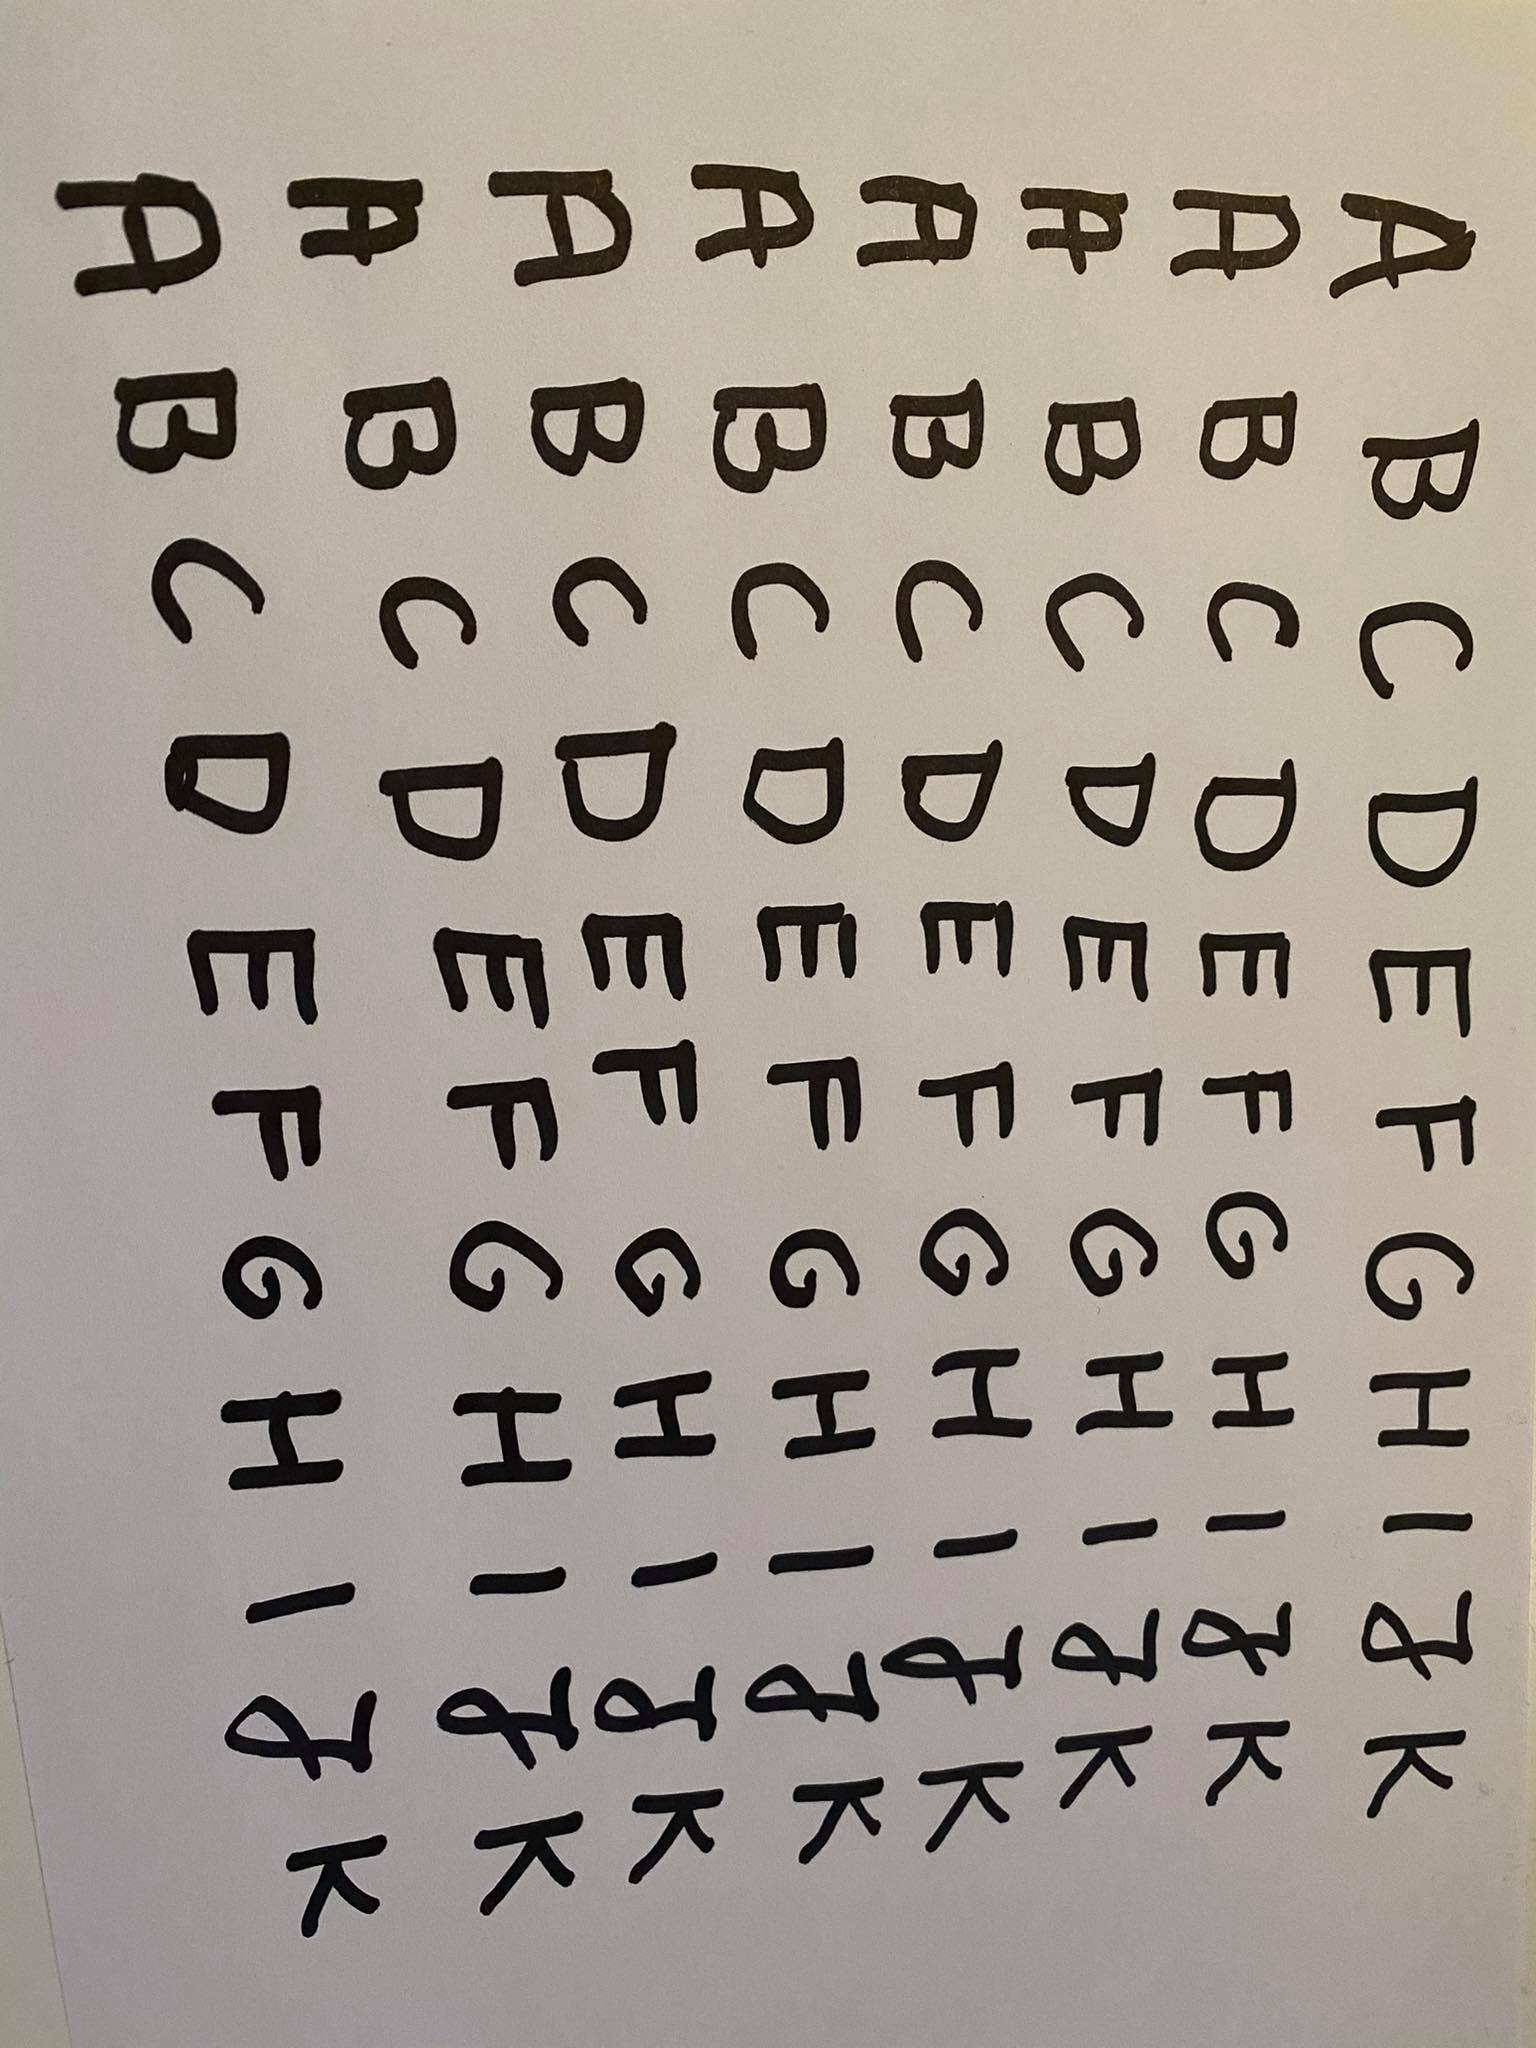 A B C D E F G H I J K
A B C D E F G H I J K
A B C D E F G H I J K
A B C D E F G H I J K
A B C D E F G H I J K
A B C D E F G H I J K
A B C D E F G H I J K
A B C D E F G H I J K